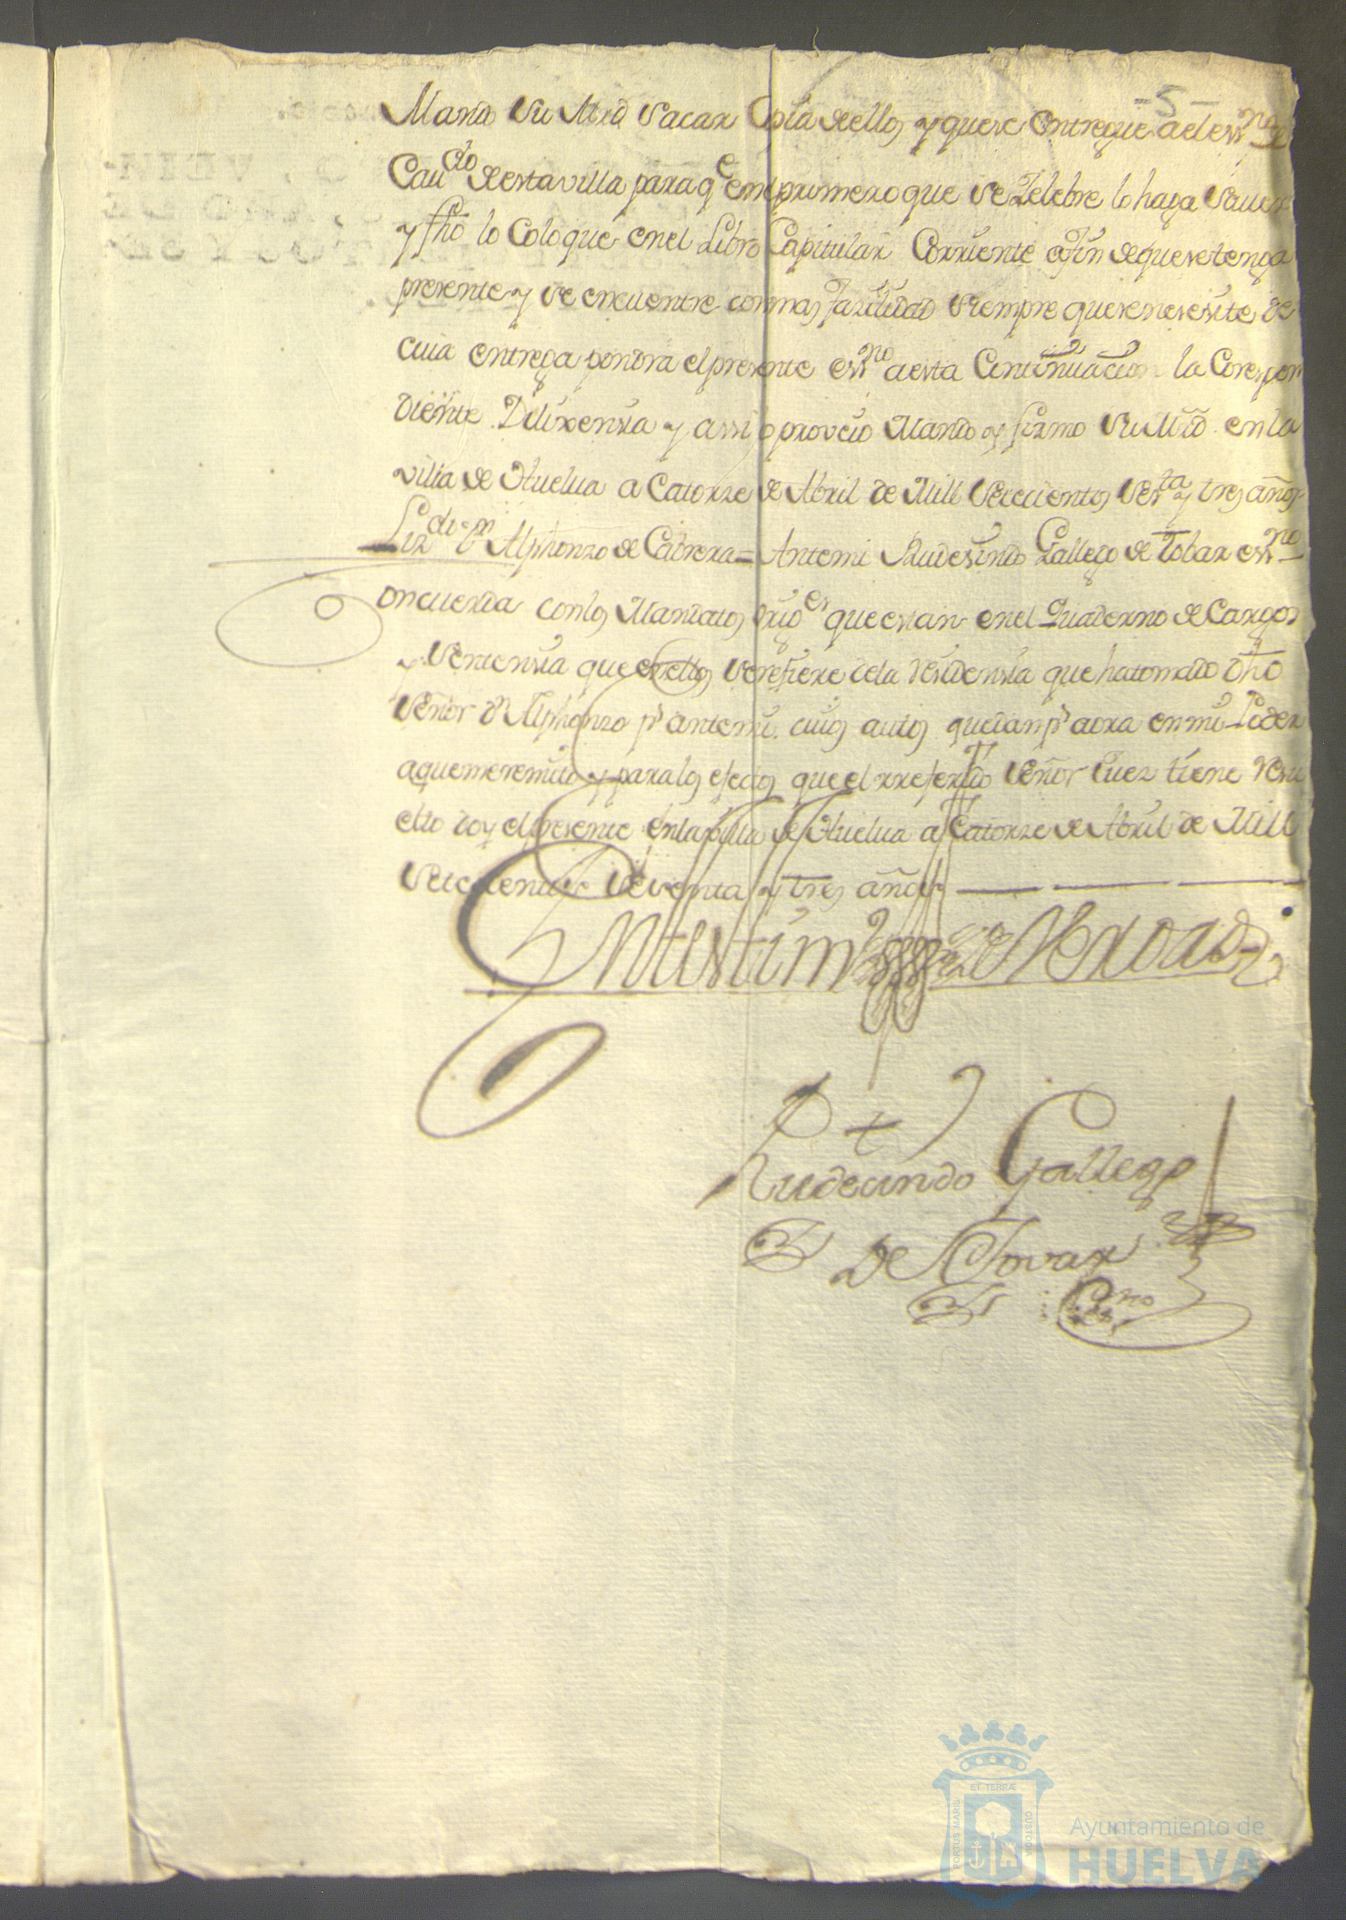 -5-
Mando Su Mrd Sacar Copia de ellos y que se entregue a el essno de
Caudo de esta villa para qe en el primero que se Zelebre lo haga Sauer
y fho lo Coloque en el Libro Capitular Corriente a fin de que se tenga
presente y se encuentre con mas fazilidad Siempre que se nesesite de
cuia entrega pondra el presente essno a esta Continuacion la Corespon
diente Dilixensia y assi lo proveio Mando y firmo Su Mrd en la
villa de Huelua a Catorze de Abril de Mill Setecientos Sesta y tres años
Lizdo Dn Alphonzo de Cabrera = Ante mi Rudesindo Gallego de Tobar essno
Concuerda con los Mandatos orijes que estan en el Quaderno de Cargos
y Sentensia que en ellos se refiere de la Residensia que ha tomado dho
Señor Dn Alphonzo pr ante mi cuios autos quedan pr aora en mi Poder
a que me remito y para los efectos que el rreferido Señor Juez tiene Resu
elto doy el presente en la villa de Huelua a Catorze de Abril de Mill
Setecientos Sesenta y tres años
En testimo de Verdad
Rudecindo Gallego
de Tovar
Essno
ET TERRÆ
PORTUS MARIS
CUSTODIA
Ayuntamiento de
HUELVA